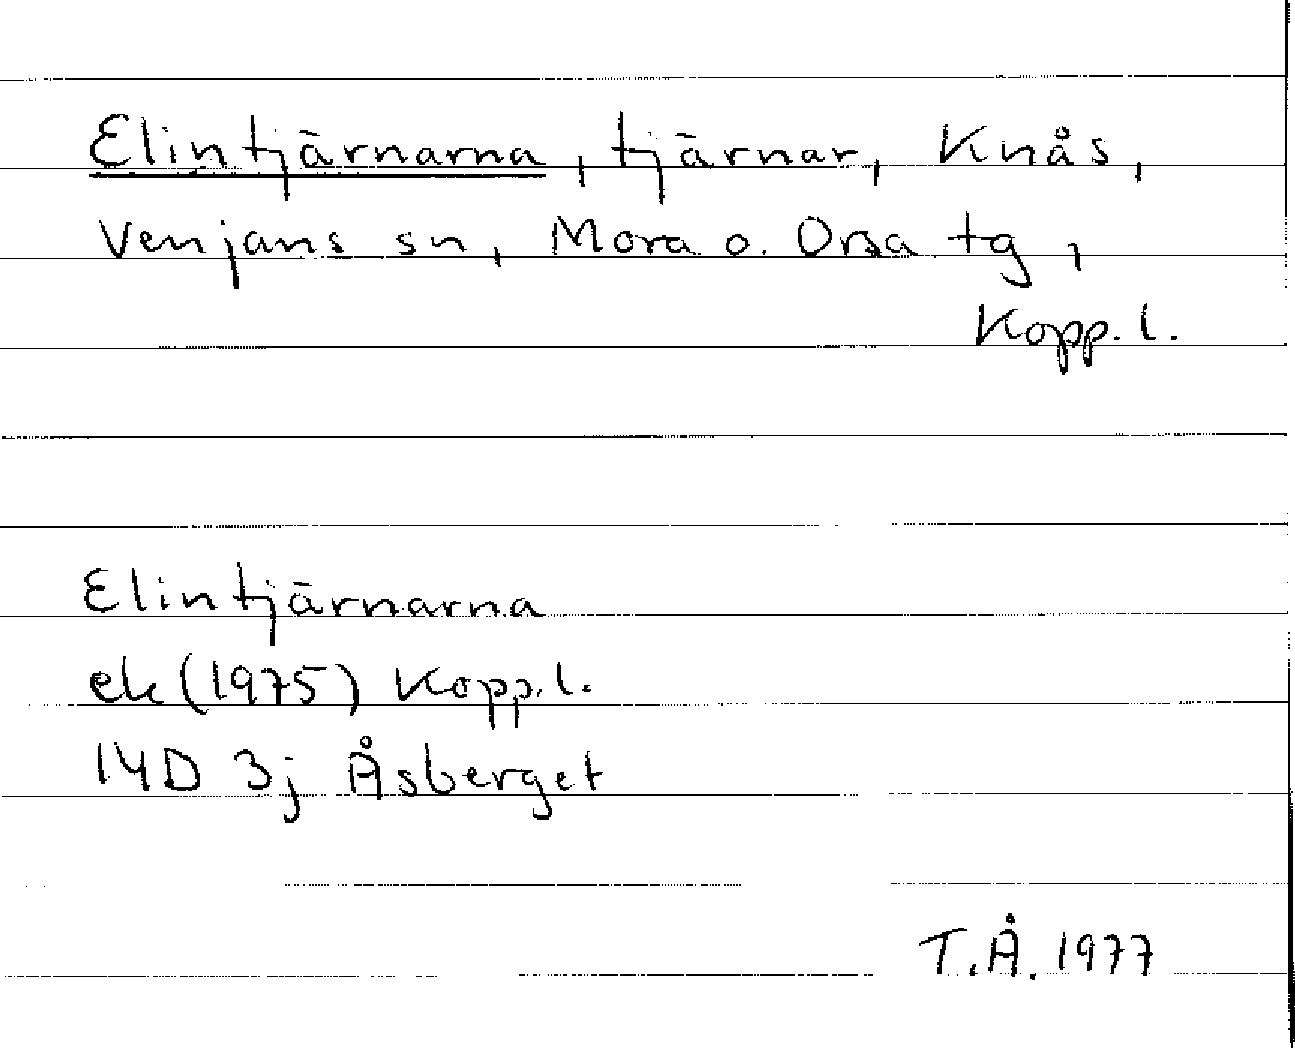 Elintjärnarna, tjärnar, Knås,
Venjans sn, Mora o. Orsa tg,
Kopp. l.
Elintjärnarna
ek (1975) Kopp. l.
14D 3j Åsberget
T.Å. 1977